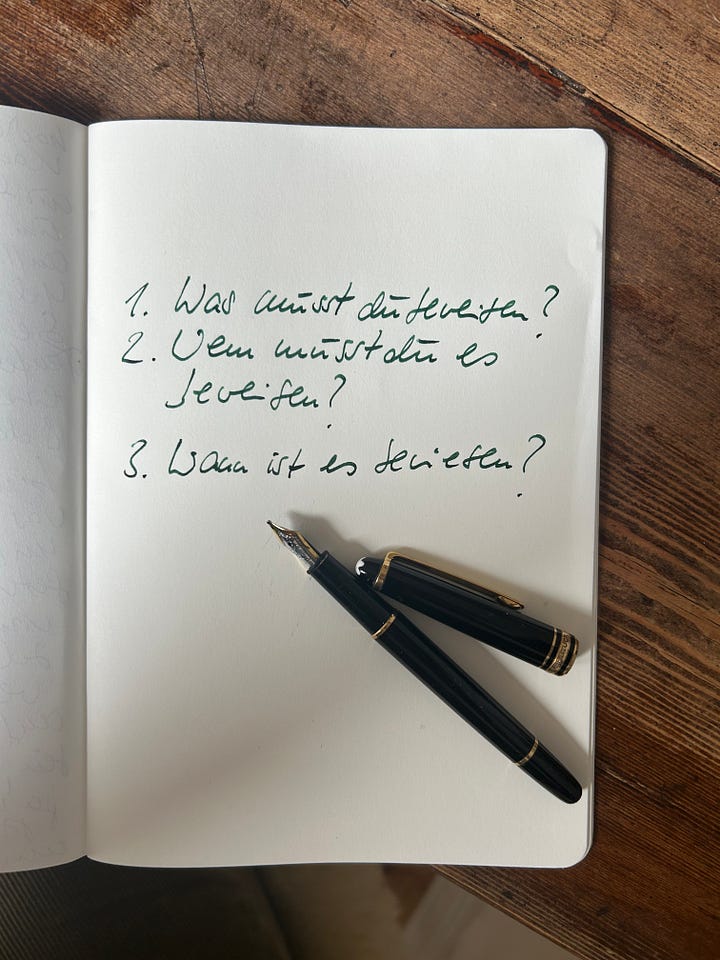 1. Was musst du beweisen?
2. Wem musst du es
beweisen?
3. Wann ist es bewiesen?